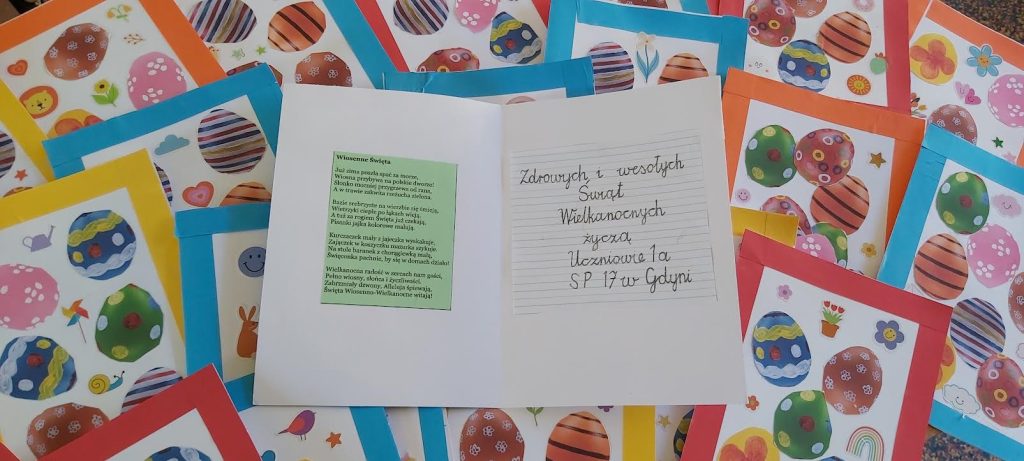 Wiosenne Święta
Już zima poszła spać za morze,
Wiosna przybywa na polskie dworze!
Słonko mocniej przygrzewa od rana,
A w trawie zakwita rzeżucha zielona.
Bazie srebrzyste na wierzbie się śmieją,
Wietrzyki ciepłe po łąkach wieją,
A tuż za rogiem Święta już czekają,
Pisanki jajka kolorowe malują.
Kurczaczek mały z jajeczka wyskakuje,
Zajączek w koszyczku mazurka szykuje.
Na stole baranek z chorągiewką małą,
Święconka pachnie, by się w domach działo!
Wielkanocna radość w sercach nam gości,
Pełno wiosny, słońca i życzliwości.
Zabrzmiały dzwony, Alleluja śpiewają,
Święta Wiosenno-Wielkanocne witają!
Zdrowych i wesołych
Świąt
Wielkanocnych
życzą
Uczniowie 1a
SP 17 w Gdyni